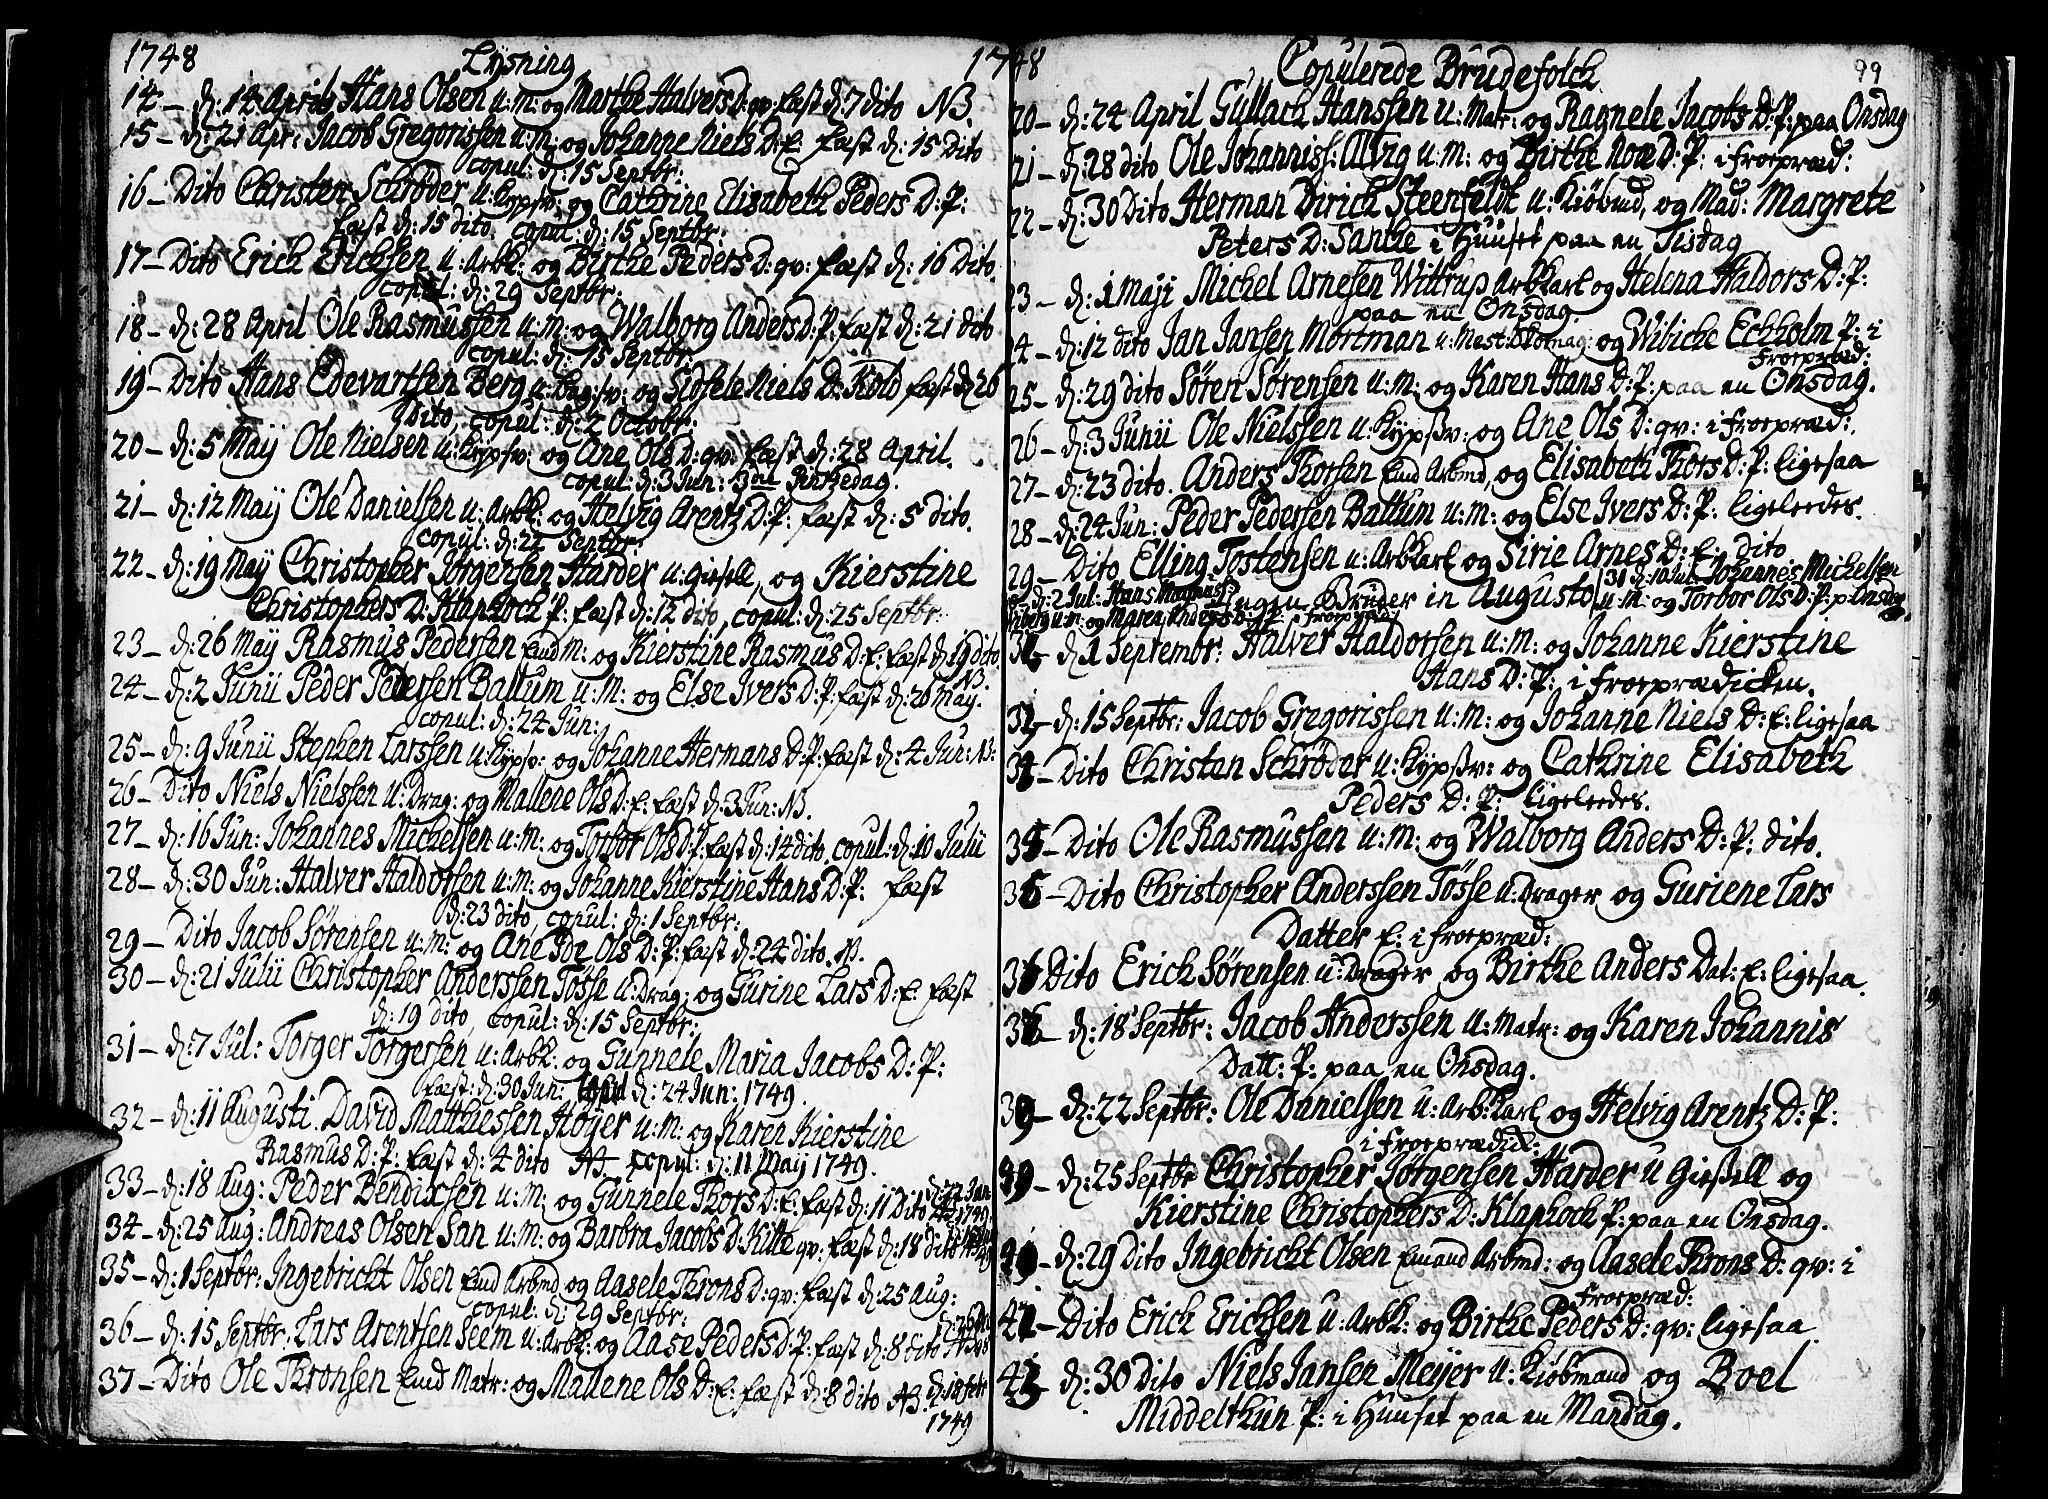 1748 Lysning
14 – d: 14 April Hans Olsen u: m: og Marthe Halvers D: qv: fæst d: 7 dito NB.
15 – d: 21 Apr: Jacob Gregorissen u: m: og Johanne Niels D: E: fæst d: 15 Dito
copul: d: 15 Septbr:
16 – Dito Christen Schrøder u: Kypsv: og Cathrine Elisabeth Peders D: P:
fæst d: 15 dito, copul: d: 15 Septbr:
17 – Dito Erich Erichsen u: Arbk: og Birthe Peders D: qv: fæst d: 16 Dito.
copul: d: 29 Septbr:
18 – d: 28 April Ole Rasmussen u: m: og Walborg Anders D: P: fæst d: 21 dito
copul: d: 15 Septbr:
19 – Dito Hans Edevartsen Berg u: og Sidsele Niels D: Kold fæst d: 26
Dito, copul: d: 2 Octobr:
20 – d: 5 Maij Ole Nielsen u: Kypsv: og Ane Ols D: qv: fæst d: 28 April.
copul: d: 3 Jun: 3die Pintzedag.
21 – d: 12 Maij Ole Danielsen u: Arbk: og Helvig Arentz D: P: fæst d: 5 dito.
copul: d: 22 Septbr:
22 – d: 19 Maij Christopher Jørgensen Harder u: Giesell, og Kierstine
Christophers D: Klaphock P: fæst d: 12 dito, copul: d: 25 Septbr:
23 – d: 26 Maij Rasmus Pedersen Emd m: og Kierstine Rasmus D: E: fæst d: 19 dito
NB.
24 – d: 2 Junii Peder Pedersen Ballum u: m: og Else Ivers D: P: fæst d: 26 Maij.
copul: d: 24 Jun:
25 – d: 9 Junii Stephen Larssen u: Kypsv: og Johanne Hermans D: P: fæst d: 4 Jun: NB:
26 – Dito Niels Nielssen u: Drag: og Mallene Ols D: E: fæst d: 3 Jun: NB.
27 – d: 16 Jun: Johannes Michelsen u: m: og Torbor Ols D: P: fæst d: 14 dito, copul: d: 10 Julii
28 – d: 30 Jun: Halver Haldorsen u: m: og Johanne Kierstine Hans D: P: fæst
d: 23 dito, copul: d: 1 Septbr:
29 – Dito Jacob Sørensen u: m: og Ane Ide Ols D: P: fæst d: 24 dito. NB.
30 – d: 21 Julii Christopher Anderssen Tøsse u: Drag: og Gurine Lars D: E: fæst
d: 19 dito, copul: d: 15 Septbr:
31 – d: 7 Jul: Torger Torgersen u: Arbk: og Gunnele Maria Jacobs D: P:
fæst: d: 30 Jun: copul d: 24 Jun: 1749.
32 – d: 11 Augusti David Matthessen Høyer u: m: og Karen Kierstine
Rasmus D: P: fæst d: 4 dito NB copul: d: 11 Maij 1749.
33 – d: 18 Aug: Peder Bendixsen u: m: og Gunnele Thors D: E: fæst d: 11 Dito d: 22 Jan: 1749
34 – d: 25 Aug: Andreas Olsen San u: m: og Barbra Jacobs D: Kitte qv: fæst d: 18 dito
35 – d: 1 Septbr: Ingebricht Olsen Emd Arbmd og Aasele Throns D: qv: fæst d: 25 Aug:
copul: d: 29 Septbr:
36 – d: 15 Septbr: Lars Arentsen Seem u: Arbk: og Aase Peders D: P: fæst d: 8 dito
37 – Dito Ole Thronsen Emd Matr: og Mallene Ols D: E: fæst d: 8 dito NB. d: 18 Febr
1749
1748 Copulerede Brudefolck 99
20 – d: 24 April Gullach Hanssen u: Matr: og Ragnele Jacobs D: P: paa Onsdag
21 – d: 28 dito Ole Johanniss: Alvig u: m: og Birthe Noæ D: P: i Froepræd:
22 – d: 30 Dito Herman Dirich Steenfeldt u: Kiøbmd, og Mad: Margrete
Peters D: Santze i Huuset paa en Tisdag
23 – d: 1 Maji Michel Arnesen Wittrup Arbkarl og Helena Haldors D: P:
paa en Onsdag.
24 – d: 12 dito Jan Jansen Mortman u: Mest: Skomag: og Wibiche Eckholm P: i
Froepræd:
25 – d: 29 dito Søren Sørensen u: m: og Karen Hans D: P: paa en Onsdag.
26 – d: 3 Junii Ole Nielssen u: Kypsv: og Ane Ols D: qv: i Froepræd:
27 – d: 23 dito. Anders Thorsen Emd Arbmd, og Elisabeth Thors D: P: ligesaa
28 – d: 24 Jun: Peder Pedersen Ballum u: m: og Else Ivers D: P: ligeleedes.
29 – Dito Elling Tostensen u: Arbkarl og Sirie Arnes D: E: dito
d: 2 Jul: Hans Ingen Bruder in Augusto 31 d: 10 Jul: Johannes Michelsen
u: m: og Maren Anders D: i Froepræd: u: m: og Torbor Ols D: P: p: Onsdag.
32 d: 1 Septembr: Halver Haldorsen u: m: og Johanne Kierstine
Hans D: P: i Froeprædicken.
33 – d: 15 Septbr: Jacob Gregorissen u: m: og Johanne Niels D: E: ligesaa
34 – Dito Christen Schrøder u: Kypsv: og Cathrine Elisabeth
Peders D: P: ligeleedes.
35 – Dito Ole Rasmussen u: m: og Walborg Anders D: P: dito.
36 – Dito Christopher Anderssen Tøsse u: Drager og Guriene Lars
Datter E: i Froepræd:
37 Dito Erich Sørensen u: Drager og Birthe Anders Dat: E: ligesaa.
38 d: 18 Septbr: Jacob Anderssen u: Matr: og Karen Johannis
Datt: P: paa en Onsdag.
39 – d: 22 Septbr: Ole Danielsen u: Arb: Karl og Helvig Arentz D: P:
i Froeprædik:
40 – d: 25 Septbr Christopher Jørgensen Harder u Giesell og
Kierstine Christophers D: Klaphock P: paa en Onsdag.
41 – d: 29 Dito Ingebricht Olsen Emand Arbmd: og Aasele Throns D: qv: i
Froepræd:
42 – Dito Erich Erichsen u: Arbk: og Birthe Peders D: qv: ligesaa
43 d: 30 Dito Niels Jansen Meijer u: Kiøbmand og Boel
Middelthun P: i Huuset paa en Mandag.